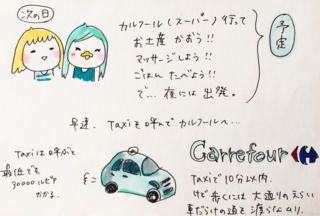 次の日
カルフール(スーパー)行って
お土産 かおう!!
マッサージしよう!!
ごはん たべよう!!
で… 夜には 出発。
予定
早速、Taxiを呼んで カルフールへ…
Taxiは呼ぶと
最低でも
30000ルピア
かかる。
Carrefour
Taxiで10分以内。
けど歩くには 大通りのえらい
車だらけの道を 渡らなムリ。